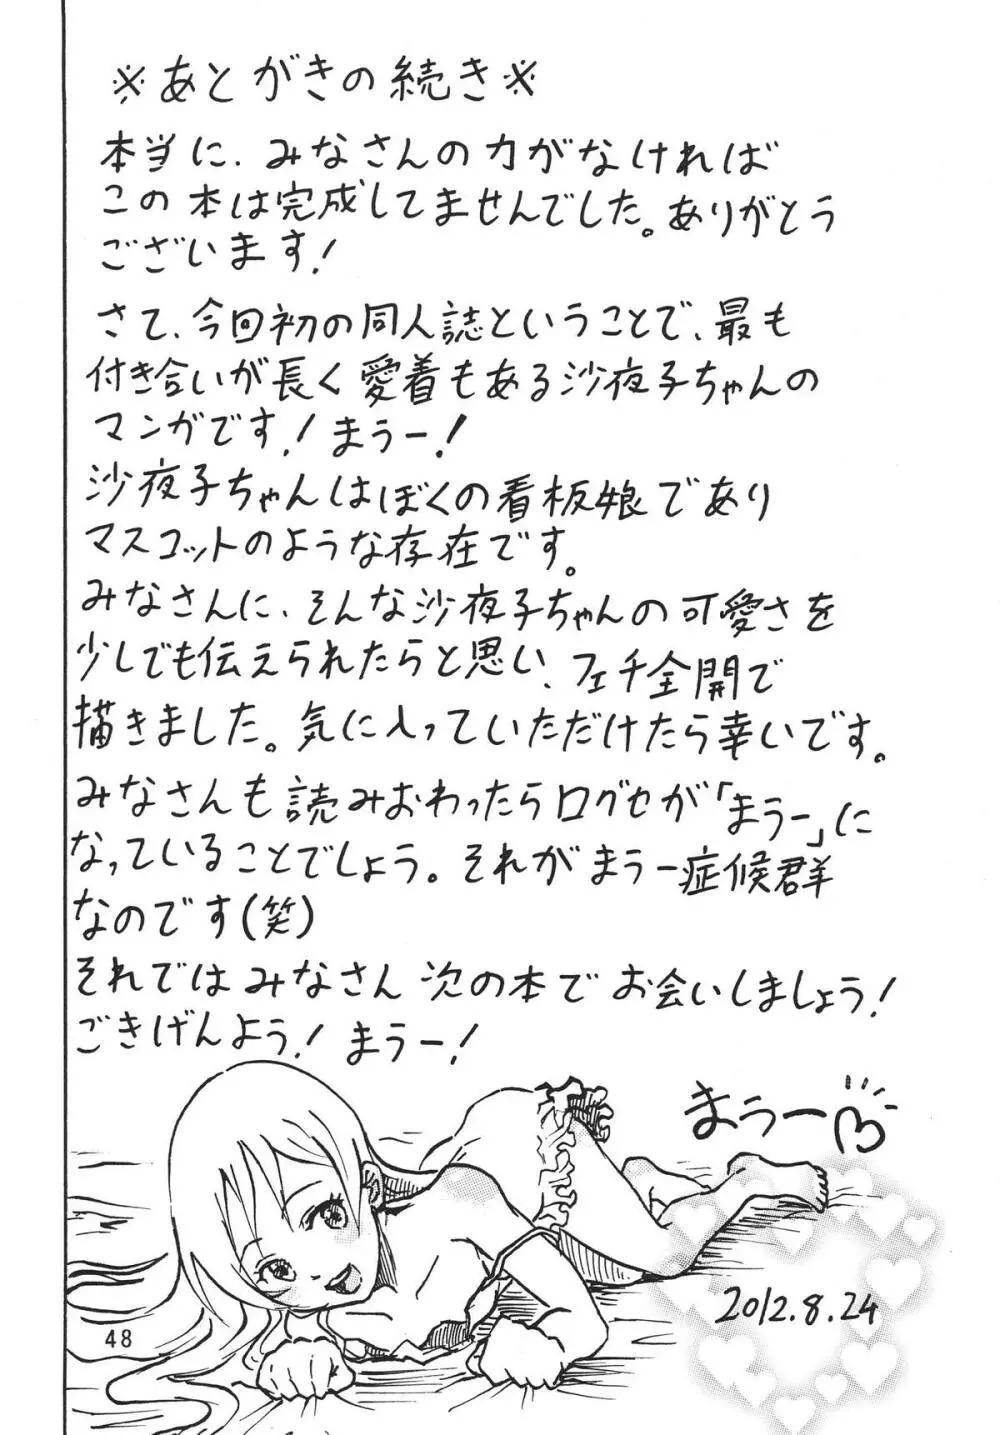 ※あとがきの続き※
本当に、みなさんの力がなければ
この本は完成してませんでした。ありがとう
ございます!
さて、今回初の同人誌ということで、最も
付き合いが長く愛着もある沙夜子ちゃんの
マンガです!まぅー!
沙夜子ちゃんはぼくの看板娘であり
マスコットのような存在です。
みなさんに、そんな沙夜子ちゃんの可愛さを
少しでも伝えられたらと思い、フェチ全開で
描きました。気に入っていただけたら幸いです。
みなさんも読みおわったら口グセが「まぅー」に
なっていることでしょう。それがまぅー症候群
なのです(笑)
それではみなさん次の本でお会いしましょう!
ごきげんよう!まぅー!
まぅー
2012.8.24
48